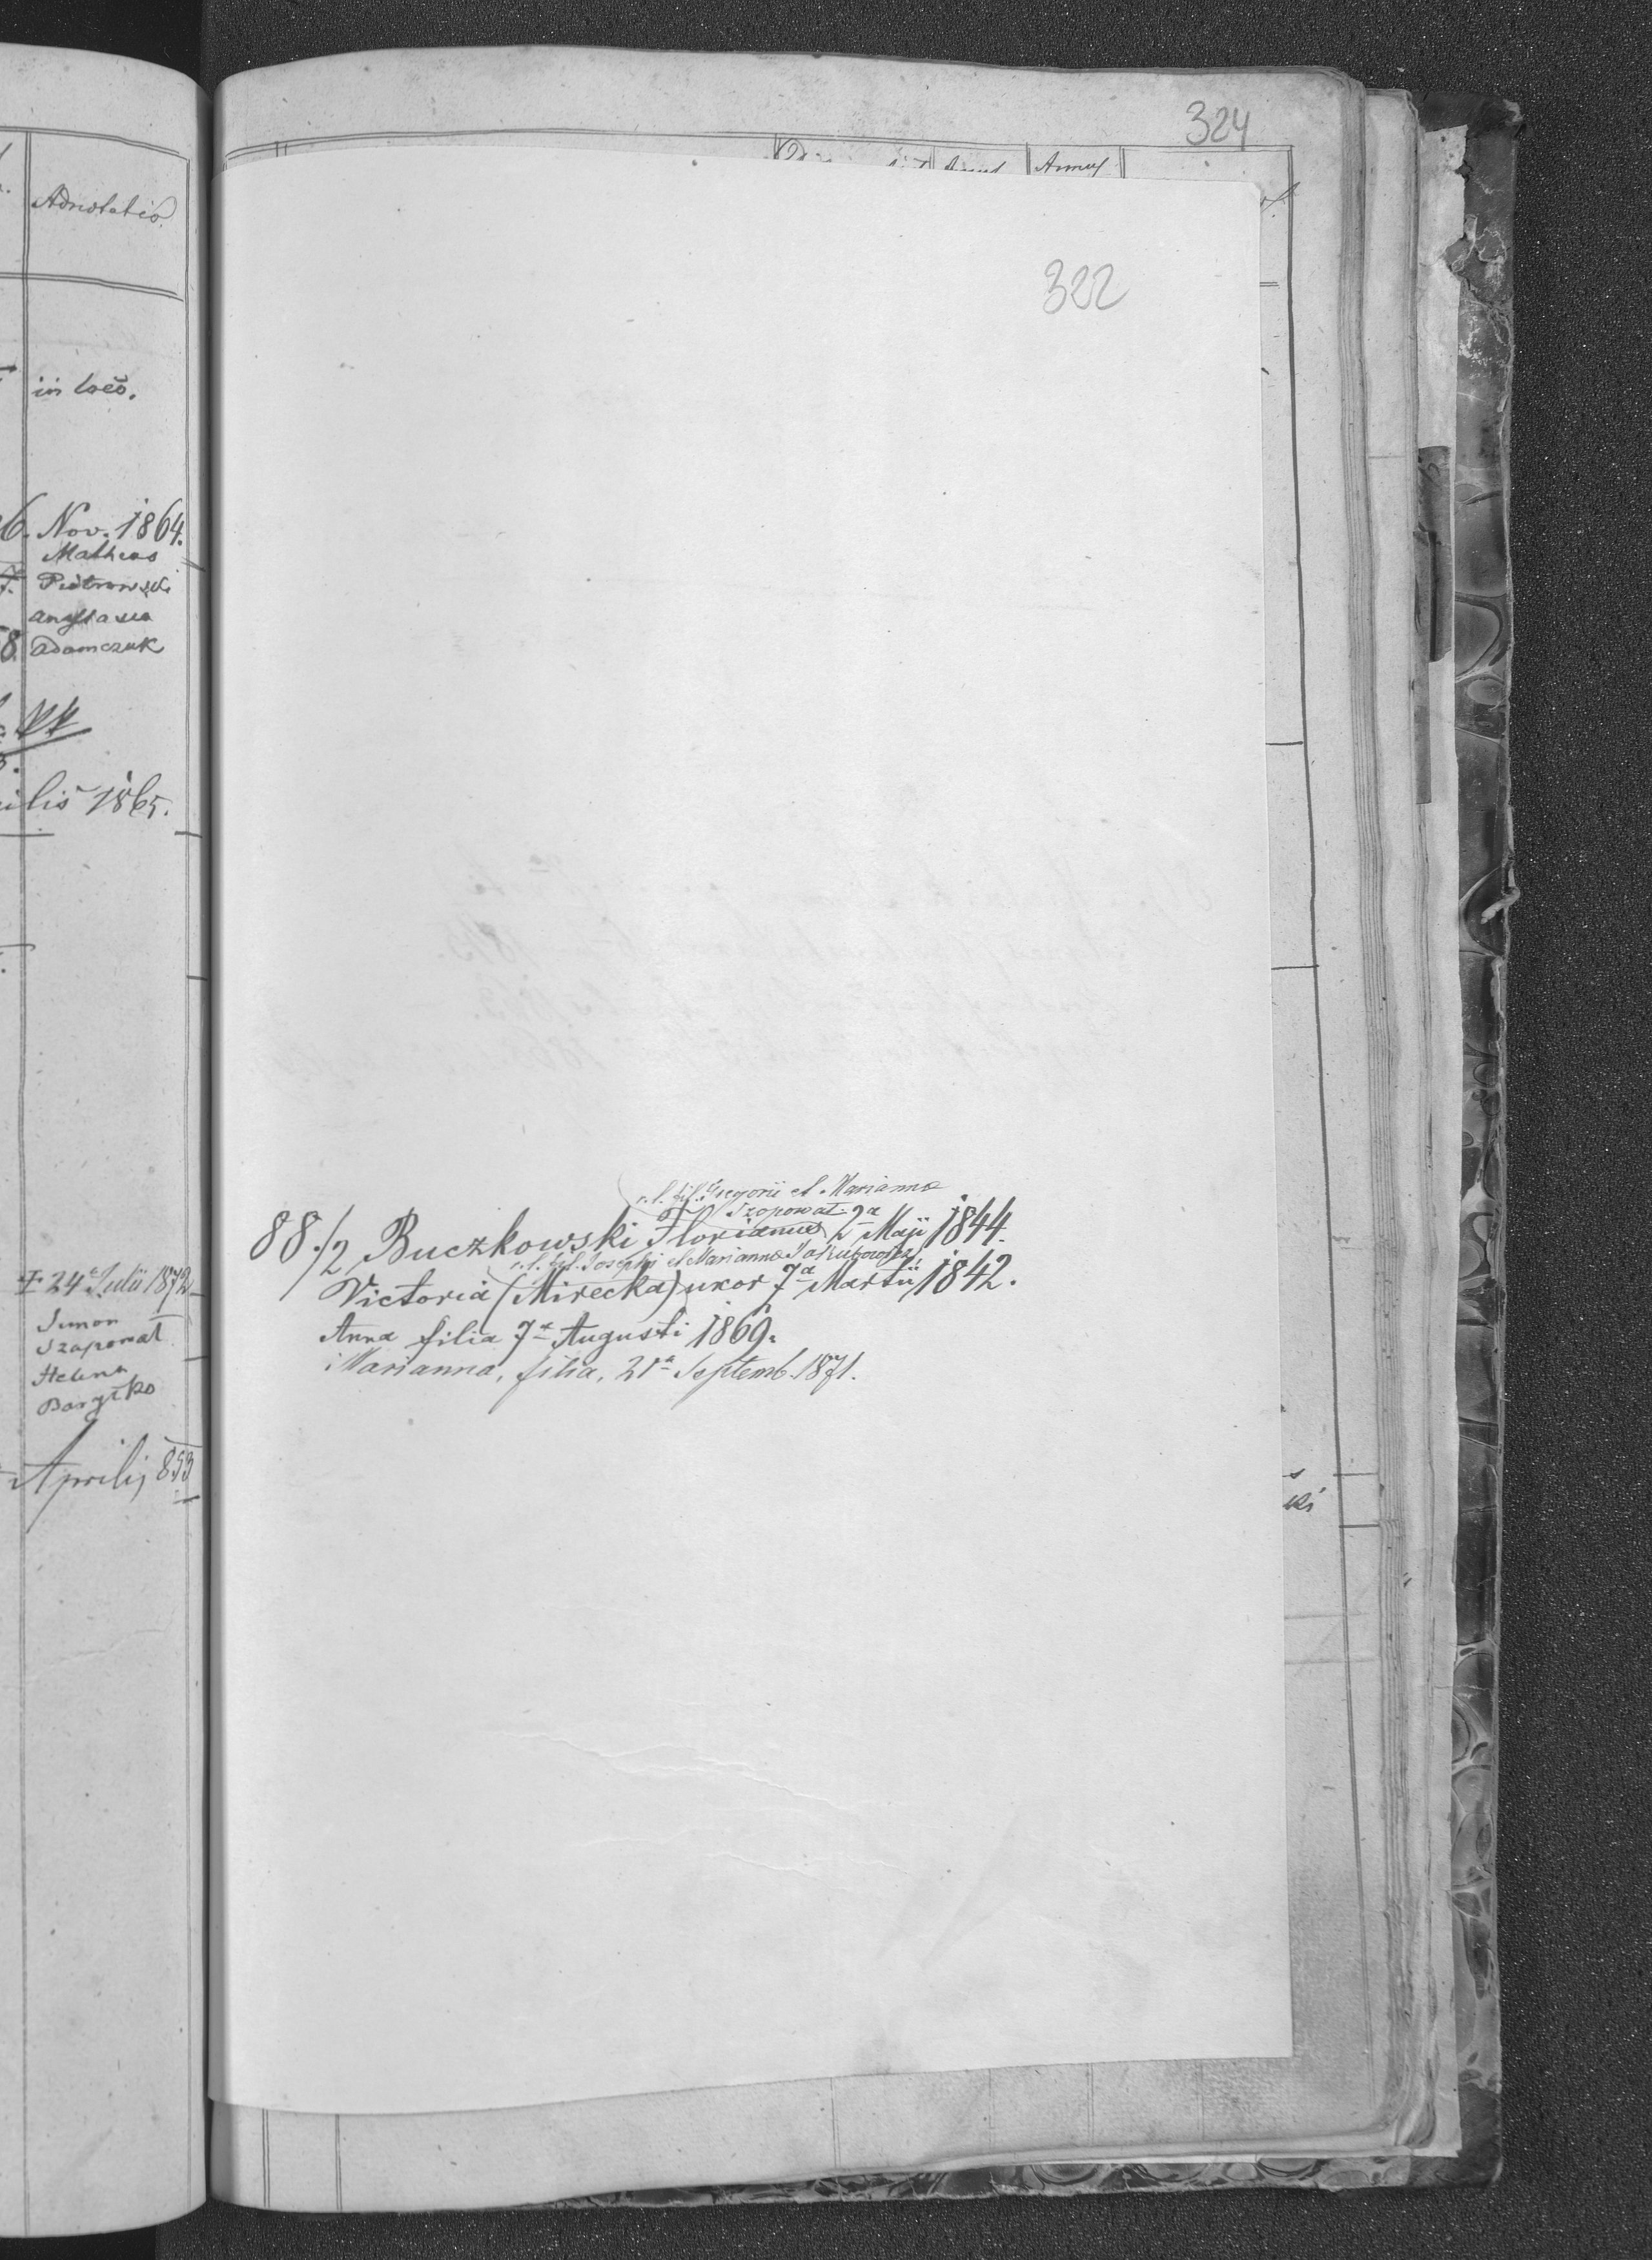 Adnotatio.
in loco.
6. Nov. 1864.
Matheas
Piotrowski
8 Adamczuk
ilis 1865.
24ª Julii 1872
Simon
Szaporval
Helena
Aprilis 853
324
Annus
322
r. l. fil. Gregorii et Marianna
Szapowat
88./2 Buczkowski Florianus 2ª Maji 1844.
r. l. fil. Josephi et Marianna Jakubowicz
Victoria (Mirecka) uxor 7ª Martii 1842.
Anna filia 7ª Augusti 1869.
Marianna, filia, 21ª Septemb. 1871.
ki